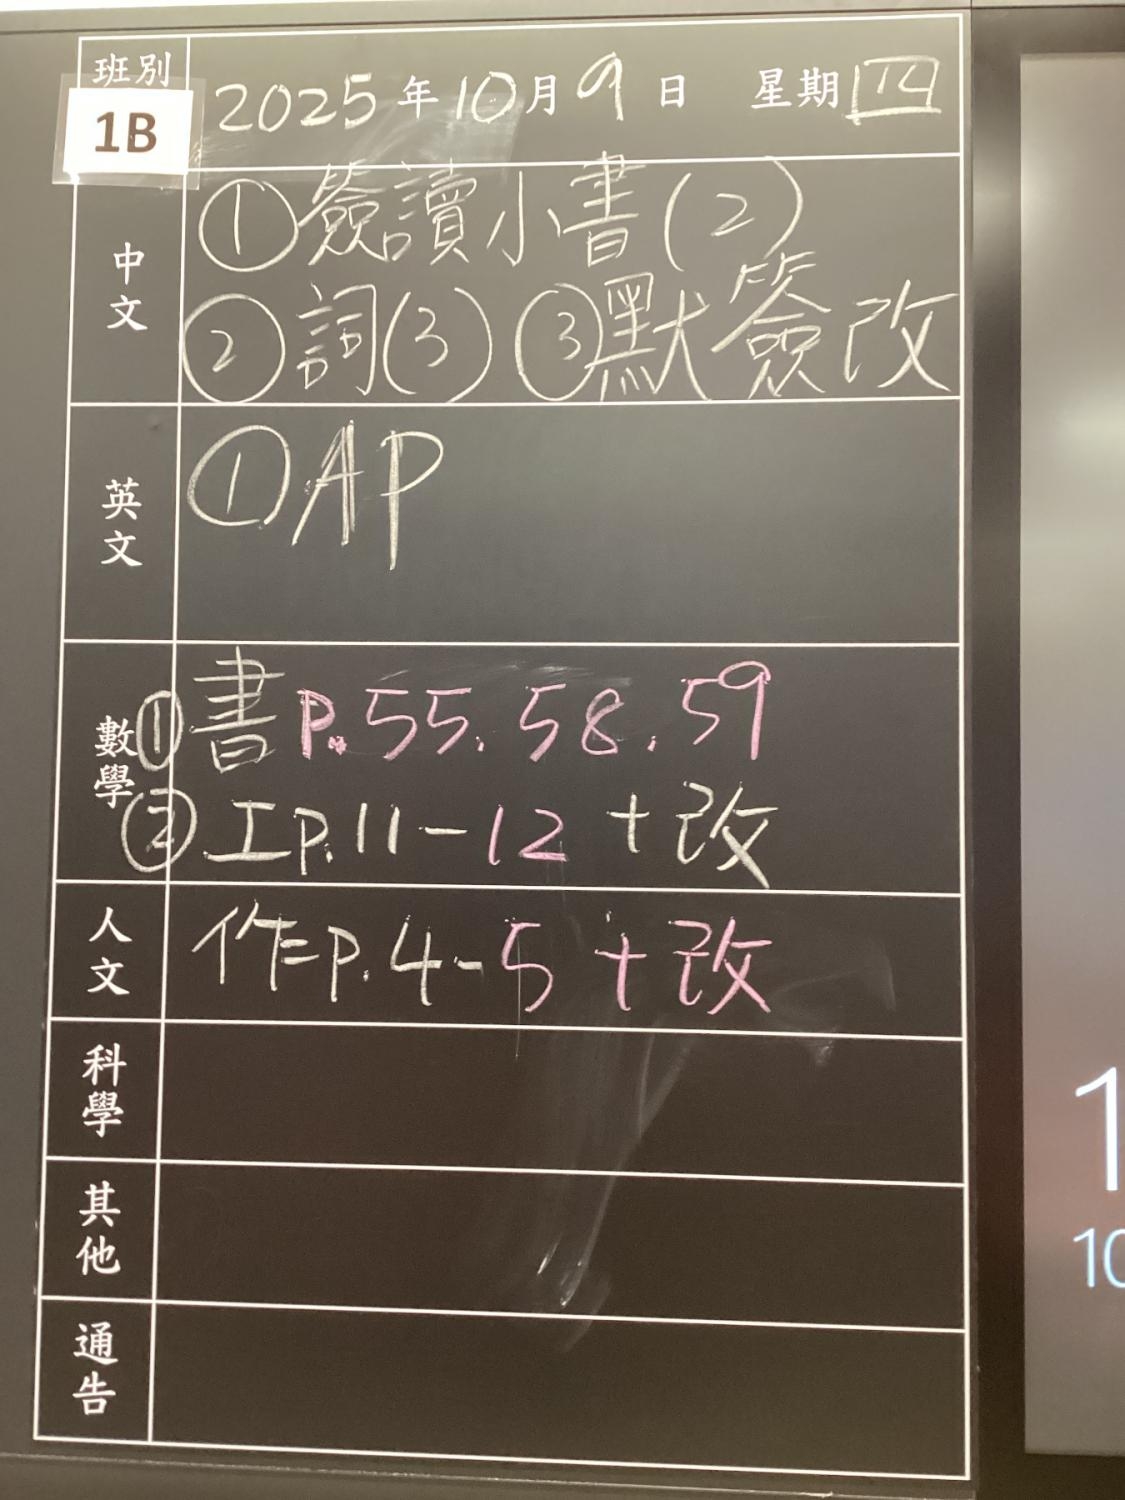 班別
1B
2025年10月9日 星期四
中文
①簽讀小書(2)
②詞(3) ③默簽改
英文
①AP
數學
①書P.55.58.59
②工P.11-12+改
人文
作P.4-5+改
科學
其他
通告
1
10